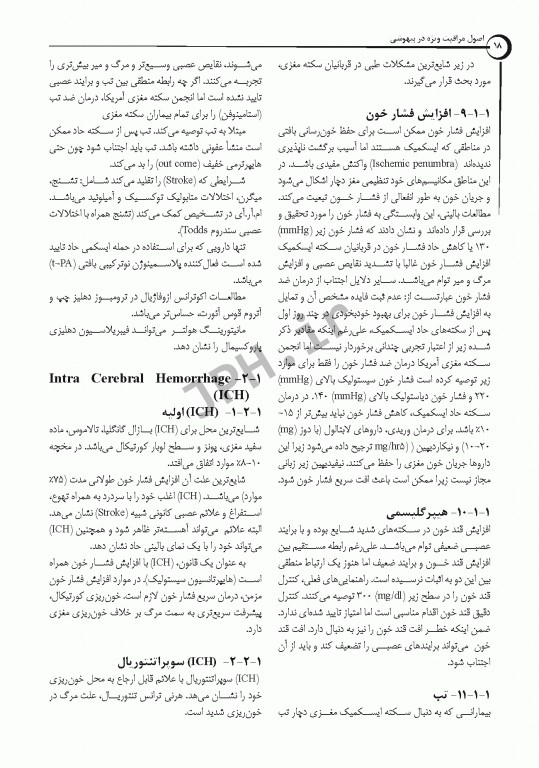 ۱۸
اصول مراقبت ویژه در بیهوشی
در زیر شایع‌ترین مشکلات طبی در قربانیان سکته مغزی،
مورد بحث قرار می‌گیرند.
۱-۱-۹- افزایش فشار خون
افزایش فشار خون ممکن است برای حفظ خون‌رسانی بافتی
در مناطقی که ایسکمیک هستند اما آسیب برگشت ناپذیری
ندیده‌اند (Ischemic penumbra) واکنش مفیدی باشد. در
این مناطق مکانیسم‌های خود تنظیمی مغز دچار اشکال می‌شود
و جریان خون به طور انفعالی از فشار خون تبعیت می‌کند.
مطالعات بالینی، این وابستگی به فشار خون را مورد تحقیق و
بررسی قرار داده‌اند و نشان دادند که فشار خون زیر (mmHg)
۱۳۰ یا کاهش حاد فشار خون در قربانیان سکته ایسکمیک
افزایش فشار خون غالبا با تشدید نقایص عصبی و افزایش
مرگ و میر توام می‌باشد. سایر دلایل اجتناب از درمان ضد
فشار خون عبارتست از: عدم ثبت فایده مشخص آن و تمایل
به افزایش فشار خون برای بهبود خودبخودی در چند روز اول
پس از سکته‌های حاد ایسکمیک، علی‌رغم اینکه مقادیر ذکر
شده زیر از اعتبار تجربی چندانی برخوردار نیست اما انجمن
سکته مغزی آمریکا درمان ضد فشار خون را فقط برای موارد
زیر توصیه کرده است فشار خون سیستولیک بالای (mmHg)
۲۲۰ و فشار خون دیاستولیک بالای (mmHg) ۱۴۰. در درمان
سکته حاد ایسکمیک، کاهش فشار خون نباید بیش‌تر از ۱۵-
۱۰٪ باشد. برای درمان وریدی، داروهای لابتالول (با دوز (mg)
۲۰-۱۰) و نیکاردیپین ( (mg/hr۵ ترجیح داده می‌شود زیرا این
داروها جریان خون مغزی را حفظ می‌کنند. نیفیدیپین زیر زبانی
مجاز نیست زیرا ممکن است باعث افت سریع فشار خون شود.
۱-۱-۱۰- هیپرگلیسمی
افزایش قند خون در سکته‌های شدید شایع بوده و با برایند
عصبی ضعیفی توام می‌باشد. علی‌رغم رابطه مستقیم بین
افزایش قند خون و برایند ضعیف اما هنوز یک ارتباط منطقی
بین این دو به اثبات نرسیده است. راهنمایی‌های فعلی، کنترل
قند خون را در سطح زیر (mg/dl) ۳۰۰ توصیه می‌کنند. کنترل
دقیق قند خون اقدام مناسبی است اما امتیاز تایید شده‌ای ندارد.
ضمن اینکه خطر افت قند خون را نیز به دنبال دارد. افت قند
خون می‌تواند برایندهای عصبی را تضعیف کند و باید از آن
اجتناب شود.
۱-۱-۱۱- تب
بیمارانی که به دنبال سکته ایسکمیک مغزی دچار تب
می‌شوند، نقایص عصبی وسیع‌تر و مرگ و میر بیش‌تری را
تجربه می‌کنند. اگر چه رابطه منطقی بین تب و برایند عصبی
تایید نشده است اما انجمن سکته مغزی آمریکا، درمان ضد تب
(استامینوفن) را برای تمام بیماران سکته مغزی
مبتلا به تب توصیه می‌کند. تب پس از سکته حاد ممکن
است منشأ عفونی داشته باشد. تب باید اجتناب شود چون حتی
هایپرترمی خفیف (out come) را بد می‌کند.
شرایطی که (Stroke) را تقلید می‌کند شامل: تشنج،
میگرن، اختلالات متابولیک توکسیک و آمیلوئید می‌باشد.
ام.آر.آی در تشخیص کمک می‌کند (تشنج همراه با اختلالات
عصبی سندروم Todds).
تنها دارویی که برای استفاده در حمله ایسکمی حاد تایید
شده است فعال‌کننده پلاسمینوژن نوترکیبی بافتی (t-PA)
می‌باشد.
مطالعات اکوترانس ازوفاژیال در ترومبوز دهلیز چپ و
آتروم قوس آئورت، حساس‌تر می‌باشد.
مانیتورینگ هولتر می‌تواند فیبریلاسیون دهلیزی
پاروکسیمال را نشان دهد.
۱-۲- Intra Cerebral Hemorrhage
(ICH)
۱-۲-۱- (ICH) اولیه
شایع‌ترین محل برای (ICH) بازال گانگلیا، تالاموس، ماده
سفید مغزی، پونز و سطح لوبار کورتیکال می‌باشد. در مخچه
۱۰-۸٪ موارد اتفاق می‌افتد.
شایع‌ترین علت آن افزایش فشار خون طولانی مدت (۷۵٪
موارد) می‌باشد. (ICH) اغلب خود را با سردرد به همراه تهوع،
استفراغ و علائم عصبی کانونی شبیه (Stroke) نشان می‌هد.
البته علائم می‌تواند آهسته‌تر ظاهر شود و همچنین (ICH)
می‌تواند خود را با یک نمای بالینی حاد نشان دهد.
به عنوان یک قانون، (ICH) با افزایش فشار خون همراه
است (هایپرتانسیون سیستولیک). در موارد افزایش فشار خون
مزمن، درمان سریع فشار خون لازم است. خون‌ریزی کورتیکال،
پیشرفت سریع‌تری به سمت مرگ بر خلاف خون‌ریزی مغزی
دارد.
۱-۲-۲- (ICH) سوپراتنتوریال
(ICH) سوپراتنتوریال با علائم قابل ارجاع به محل خون‌ریزی
خود را نشان می‌هد. هرنی ترانس تنتوریال، علت مرگ در
خون‌ریزی شدید است.
JPH.ir